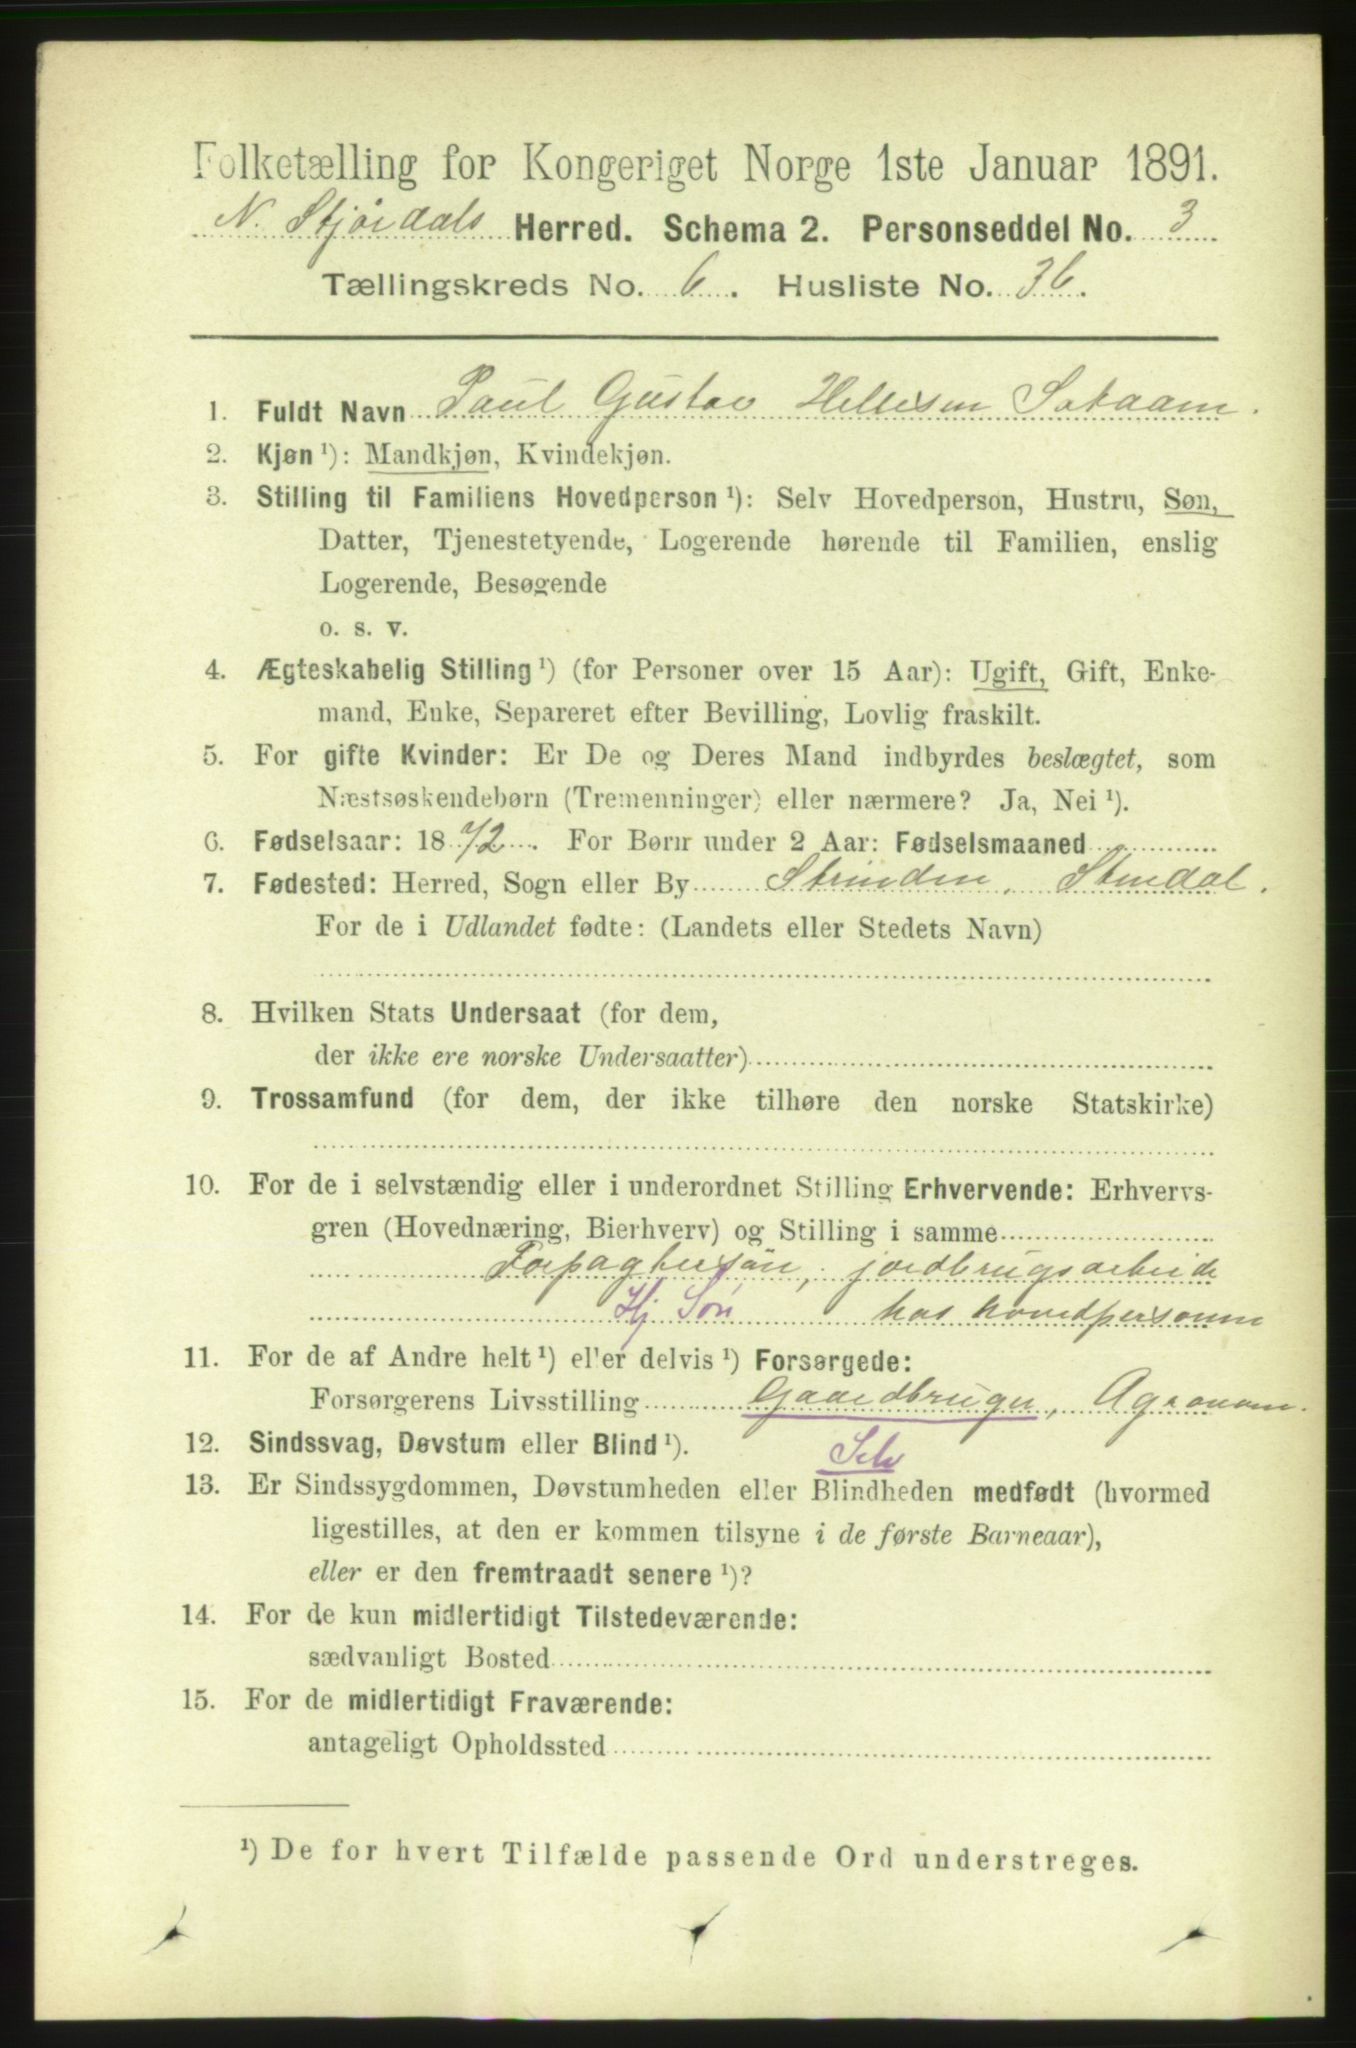 Folketælling for Kongeriget Norge 1ste Januar 1891.
N. Stjørdals Herred. Schema 2. Personseddel No. 3
Tællingskreds No. 6. Husliste No. 36.
1. Fuldt Navn Paul Gustav Hellesen
2. Kjøn ¹): Mandkjøn, Kvindekjøn.
3. Stilling til Familiens Hovedperson ¹): Selv Hovedperson, Hustru, Søn,
Datter, Tjenestetyende, Logerende hørende til Familien, enslig
Logerende, Besøgende
o. s. v.
4. Ægteskabelig Stilling ¹) (for Personer over 15 Aar): Ugift, Gift, Enke-
mand, Enke, Separeret efter Bevilling, Lovlig fraskilt.
5. For gifte Kvinder: Er De og Deres Mand indbyrdes beslægtet, som
Næstsøskendebørn (Tremenninger) eller nærmere? Ja, Nei ¹).
6. Fødselsaar: 1872. For Børn under 2 Aar: Fødselsmaaned
7. Fødested: Herred, Sogn eller By Strinden,
For de i Udlandet fødte: (Landets eller Stedets Navn)
8. Hvilken Stats Undersaat (for dem,
der ikke ere norske Undersaatter)
9. Trossamfund (for dem, der ikke tilhøre den norske Statskirke)
10. For de i selvstændig eller i underordnet Stilling Erhvervende: Erhvervs-
gren (Hovednæring, Bierhverv) og Stilling i samme
Forpagtersøn, jordbrugsarbeide
Hj Søn hos hovedpersonen
11. For de af Andre helt ¹) el'er delvis ¹) Forsørgede:
Forsørgerens Livsstilling Gaardbruger, Agronom.
12. Sindssvag, Døvstum eller Blind ¹). Selv
13. Er Sindssygdommen, Døvstumheden eller Blindheden medfødt (hvormed
ligestilles, at den er kommen tilsyne i de første Barneaar),
eller er den fremtraadt senere ¹)?
14. For de kun midlertidigt Tilstedeværende:
sædvanligt Bosted
15. For de midlertidigt Fraværende:
antageligt Opholdssted
¹) De for hvert Tilfælde passende Ord understreges.